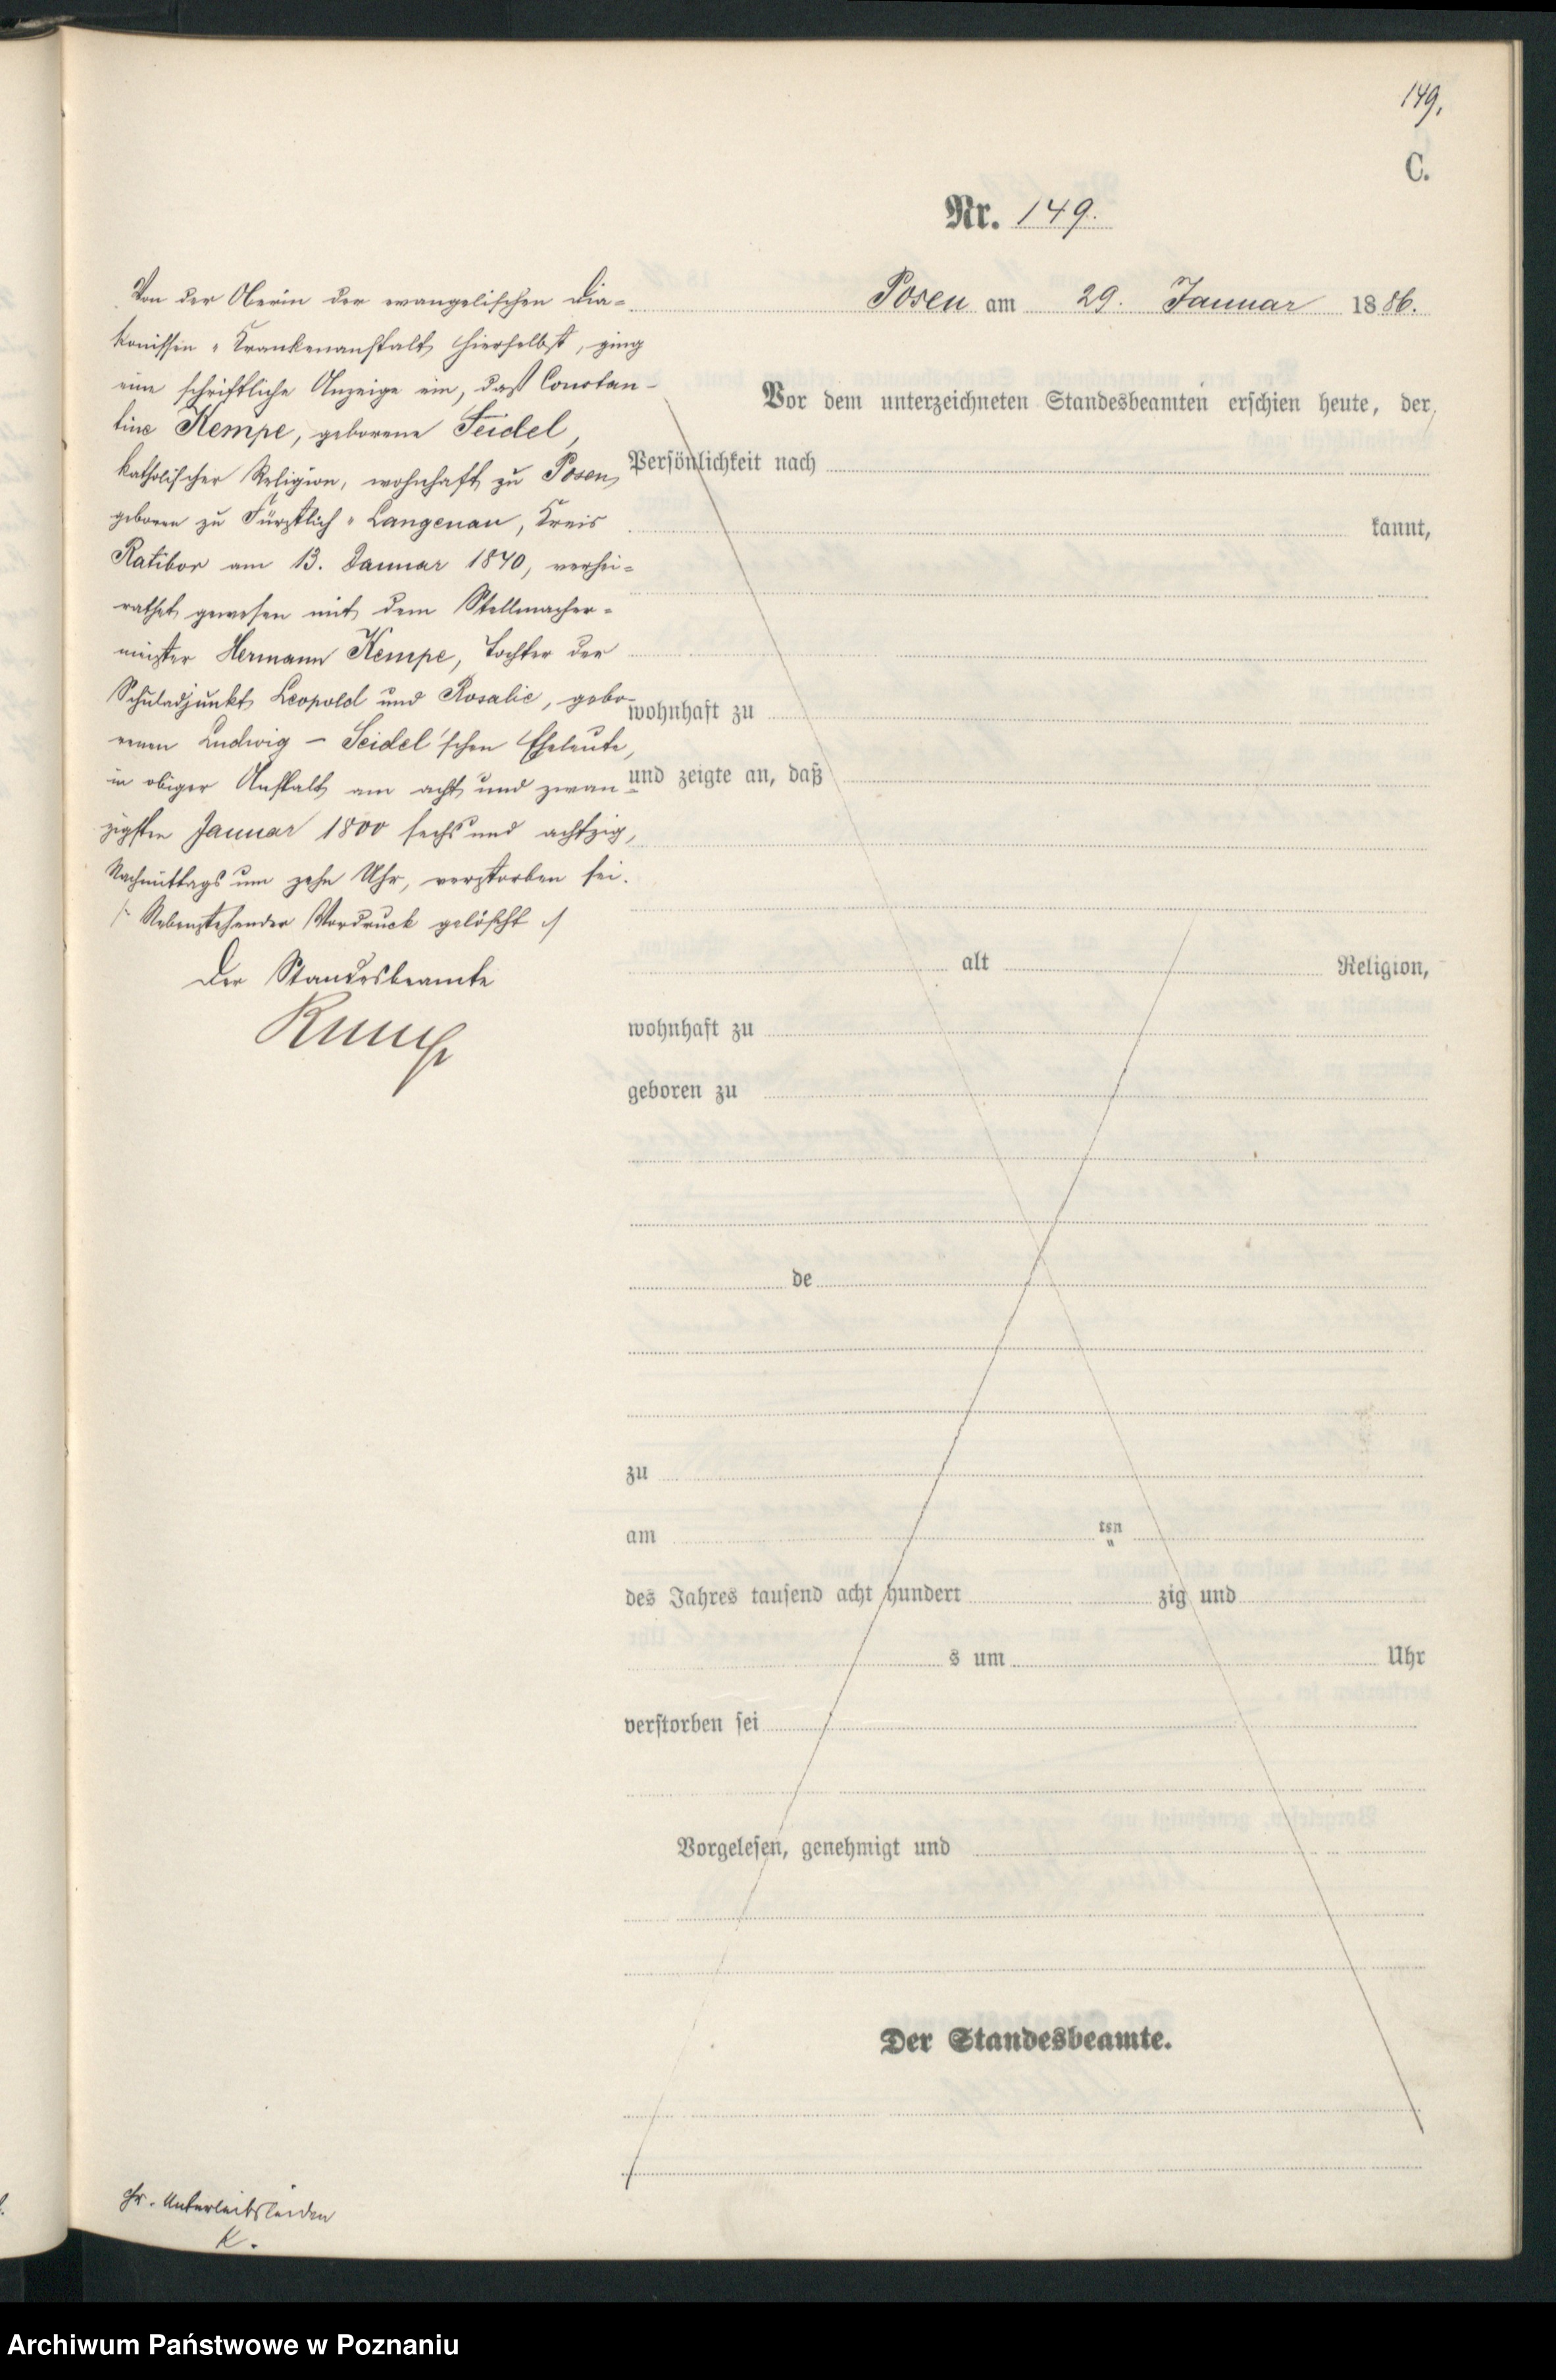 149.
C.
Nr. 149.
Posen am 29. Januar 1886.
Von der Oberin der evangelischen Dia-
konissen-Krankenanstalt hierselbst, ging
eine schriftliche Anzeige ein, daß Constan-
tine Kempe, geborene Seidel,
katholischer Religion, wohnhaft zu Posen,
geboren zu Fürstlich-Langenau, Kreis
Ratibor am 13. Januar 1840, verhei-
rathet gewesen mit dem Stellmacher-
meister Hermann Kempe, Tochter der
Schuladjunkt Leopold und Rosalie, gebo-
renen Ludwig – Seidel'schen Eheleute,
in obiger Anstalt am acht und zwan-
zigsten Januar 1800 sechs und achtzig,
Nachmittags um zehn Uhr, verstorben sei.
/: Nebenstehender Vordruck gelöscht :/
Der Standesbeamte
Vor dem unterzeichneten Standesbeamten erschien heute, der
Persönlichkeit nach
kannt,
wohnhaft zu
und zeigte an, daß
alt Religion,
wohnhaft zu
geboren zu
de
zu
am ten
des Jahres tausend acht hundert zig und
s um Uhr
verstorben sei
Vorgelesen, genehmigt und
Der Standesbeamte.
chr. Unterleibsleiden
K.
Archiwum Państwowe w Poznaniu